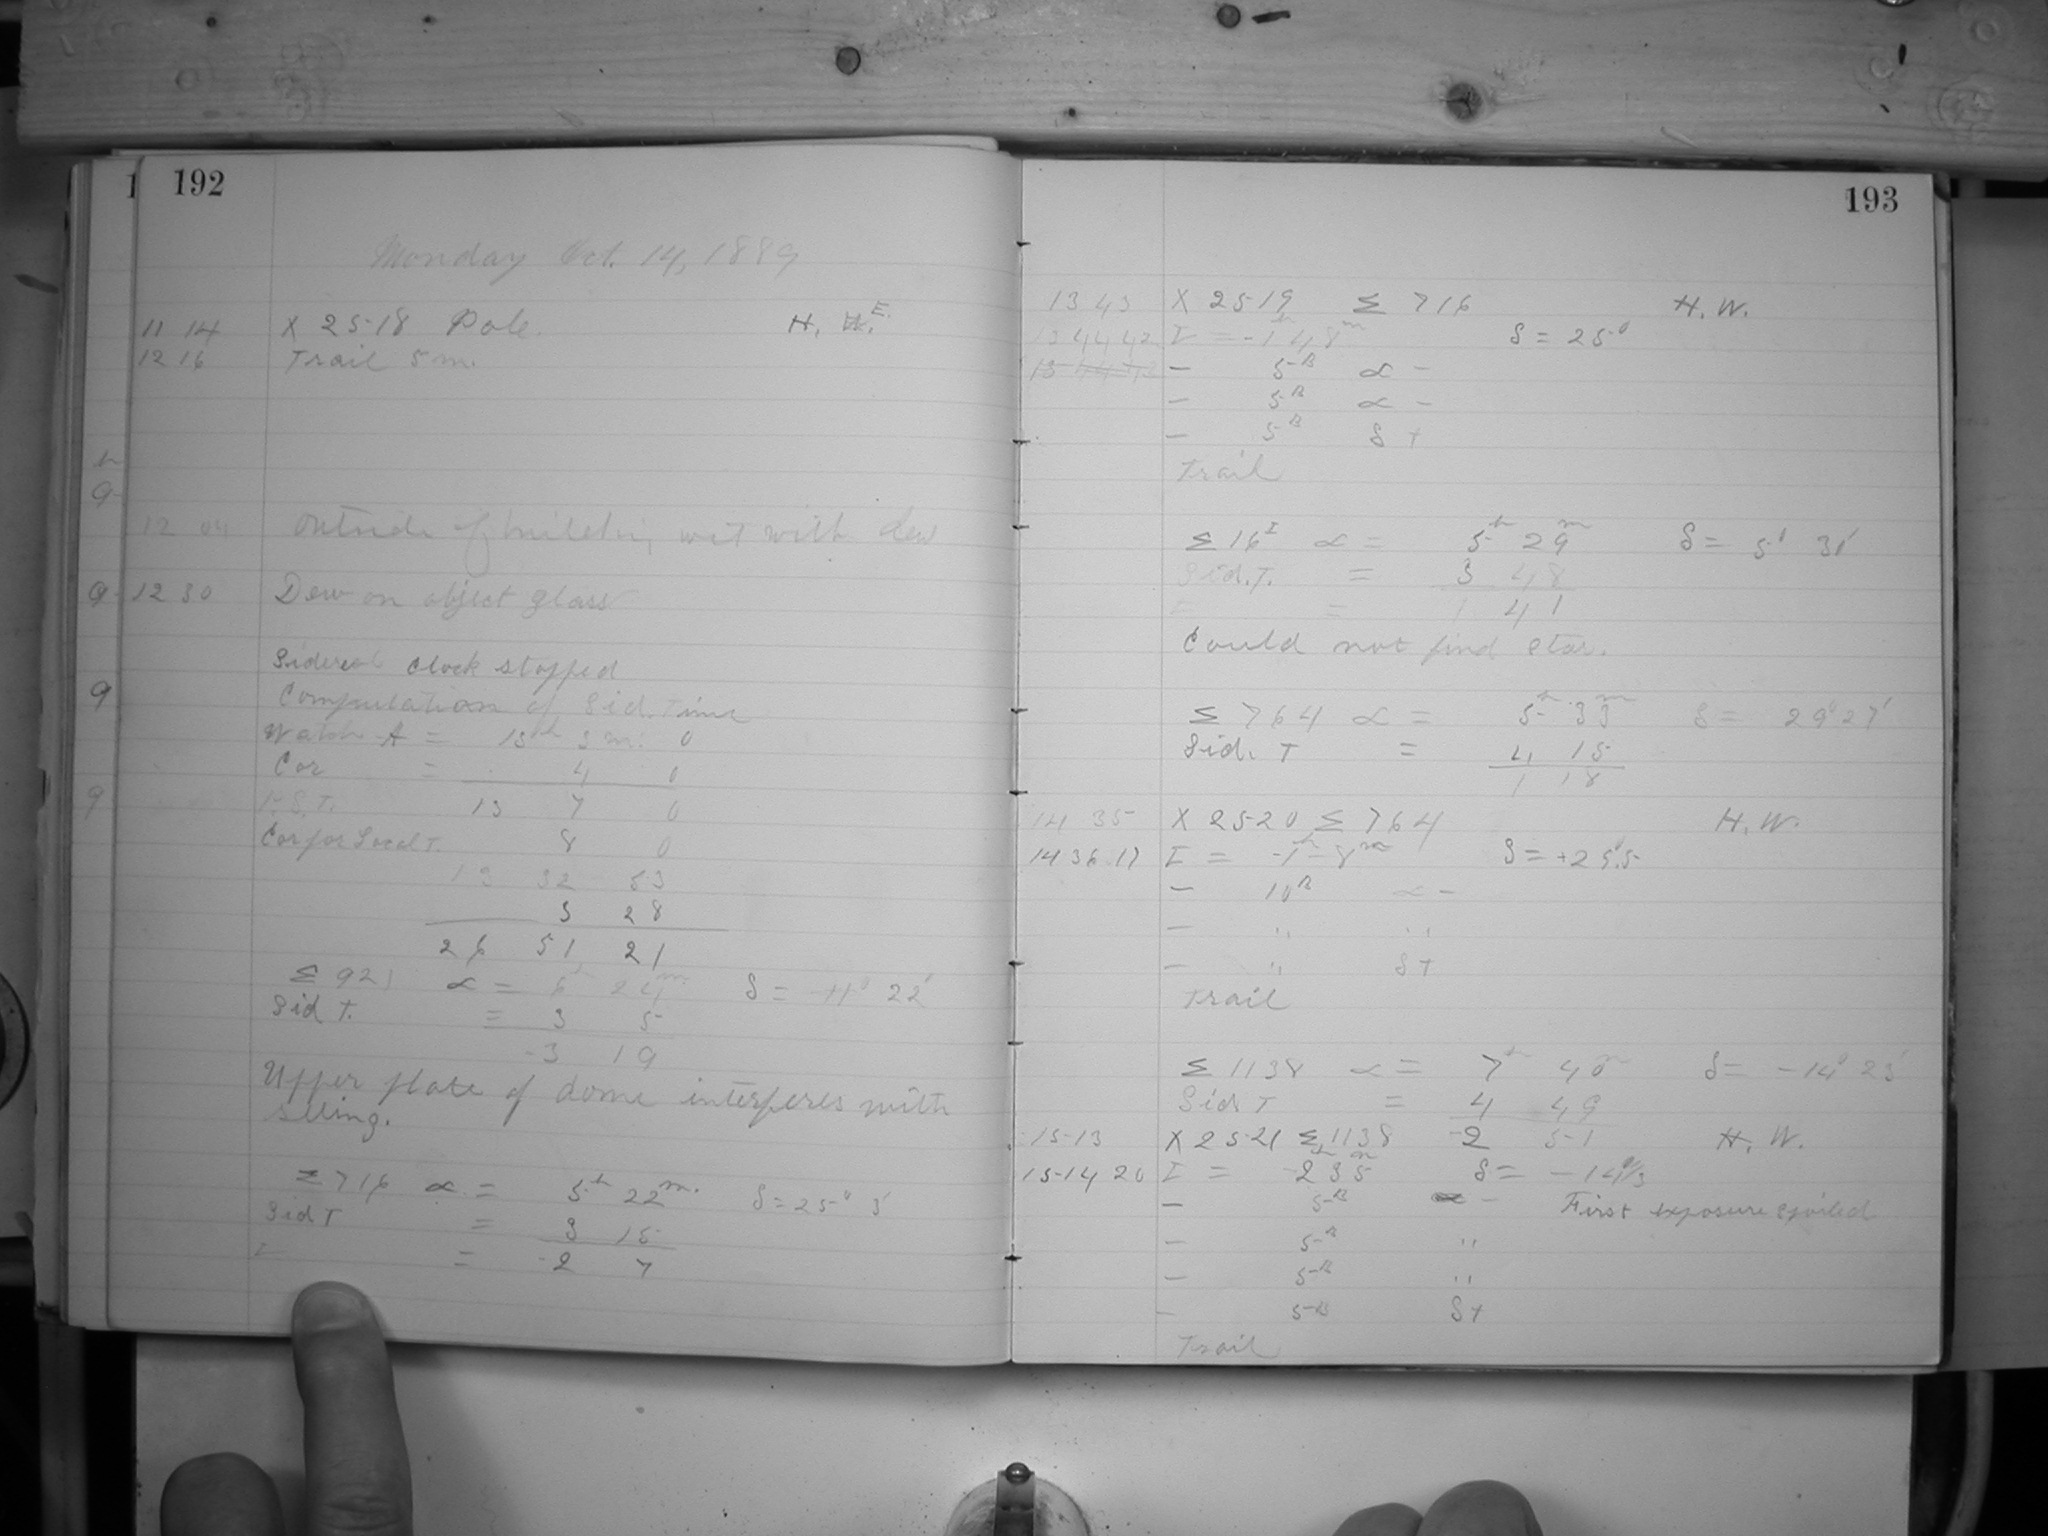 192
Monday Oct. 14, 1889
11 14 X 2518 Pole. H. W. E.
12 16 Trail 5 m.
12 04 Outside of building wet with dew
12 30 Dew on object glass
Sidereal clock stopped
Computation of Sid. Time
Watch A = 13h 3 m. 0
Cor = 4 0
13 7 0
Cor for Local T. 8 0
13 32 53
3 28
26 51 21
Σ 921 α = 6h 24m δ = +11° 22'
Sid T. = 3 5
-3 19
Upper plate of dome interferes with
seeing.
Σ 716 α = 5h 22m. δ = 25° 3'
Sid T = 3 15
I = -2 7
193
13 43 X 2519 Σ 716 H. W.
13 44 42 I = -1h 48m δ = 25°
— 5B α -
— 5B α -
— 5B δ +
Trail
Σ 16I α = 5h 29m δ = 5° 31'
Sid. T. = 3 48
= 1 41
Could not find star.
Σ 764 α = 5h 33m δ = 29° 27'
Sid. T = 4 15
1 18
14 35 X 2520 Σ 764 H. W.
14 36 17 I = -1h 8m δ = +29°.5
— 10B α -
— " "
— " δ +
Trail
Σ 1138 α = 7h 40m δ = -14° 23'
Sid T = 4 49
15 13 X 2521 Σ 1138 -2 51 H. W.
15 14 20 I = -2h 35m δ = -14 1/3
— 5B - First exposure spoiled
— 5B "
— 5B "
— 5B δ +
Trail